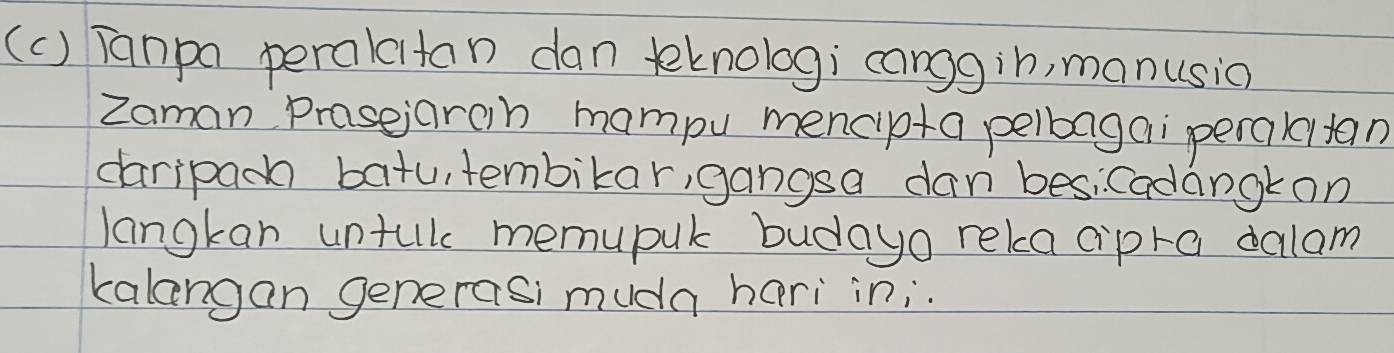 (c) Tanpa peralatan dan teknologi canggih, manusia
Zaman Prasejarah mampu mencipta pelbagai peralatan
daripada batu, tembikar, gangsa dan besi. Cadangkan
langkah untuk memupuk budaya reka cipta dalam
kalangan generasi muda hari ini.